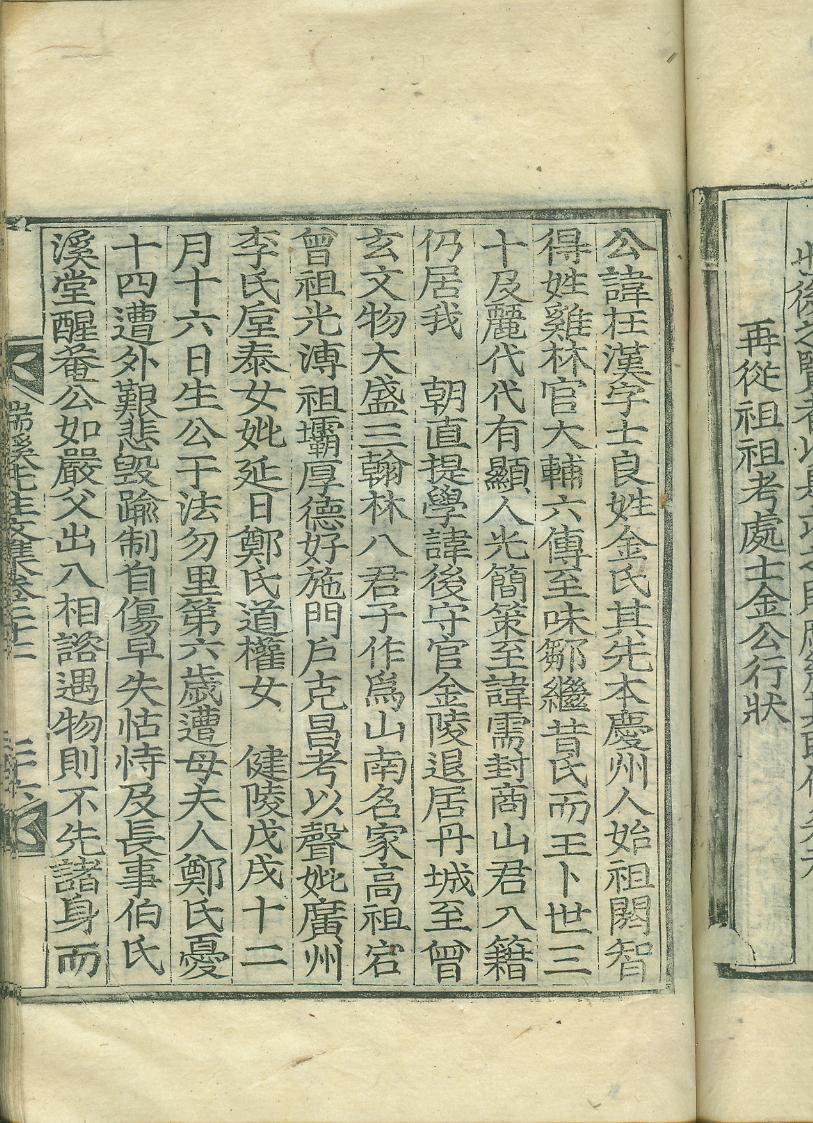 再從祖祖考處士金公行狀
公諱枉漢字士良姓金氏其先本慶州人始祖閼智
得姓雞林官大輔六傳至味鄒繼昔氏而王卜世三
十及麗代代有顯人光簡策至諱需封商山君入籍
仍居我 朝直提學諱後守官金陵退居丹城至曾
玄文物大盛三翰林八君子作爲山南名家高祖宕
曾祖光溥祖壩厚德好施門戶克昌考以聲妣廣州
李氏垕泰女妣延日鄭氏道權女 健陵戊戌十二
月十六日生公于法勿里第六歲遭母夫人鄭氏憂
十四遭外艱悲毁踰制自傷早失怙恃及長事伯氏
溪堂醒菴公如嚴父出入相諮遇物則不先諸身而
端溪先生文集卷二十二
二十六